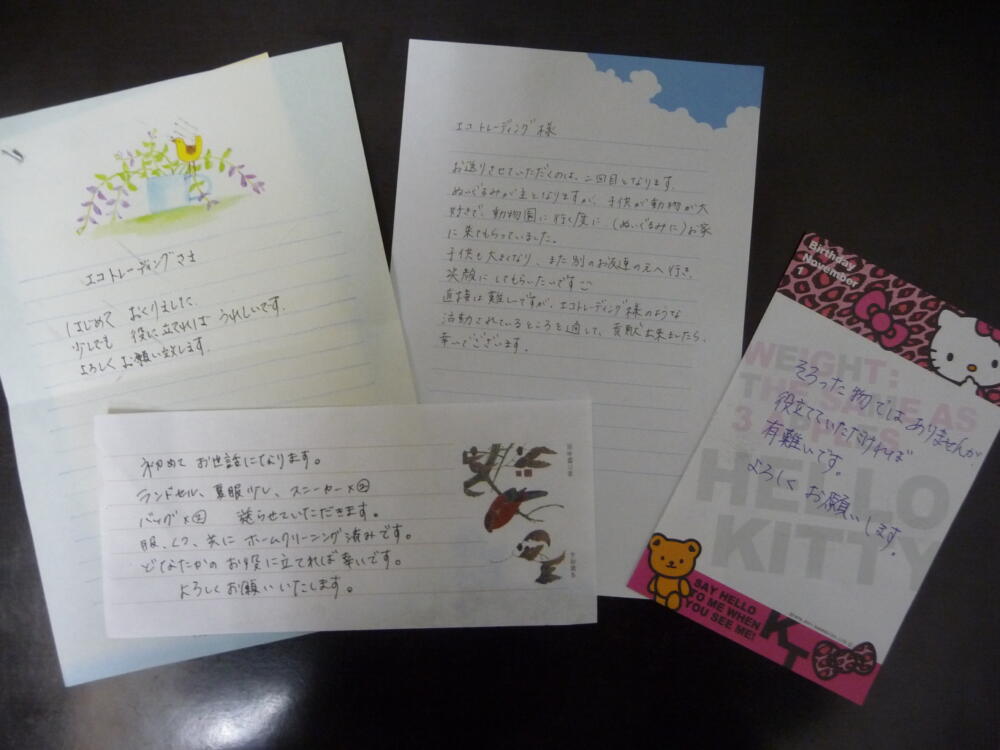 エコトレーディングさま
はじめて おくりました.
少しでも 役に立てれば うれしいです.
よろしくお願い致します.
エコトレーディング様
お送りさせていただくのは、二回目となります.
ぬいぐるみが主となりますが、子供が動物が大
好きで、動物園に行く度に (ぬいぐるみに)お家
に来てもらっていました.
子供も大きくなり、また別のお友達の元へ行き、
笑顔に してもらいたいです
直接は難しいですが、エコトレーディング様のような
活動されているところを通して、貢献出来ましたら、
幸いでございます.
初めて お世話になります。
ランドセル、夏服少し、スニーカー×②
バッグ×② 送らせていただきます。
服、くつ、共に ホームクリーニング済みです。
どなたかの お役に立てれば幸いです。
よろしくお願いいたします。
Birthday
November
1
WEIGHT:
THE SAME AS
3 APPLES
HELLO
KITTY
そろった物ではありませんが、
役立てていただければ
有難いです。
よろしくお願いします。
SAY HELLO
TO ME WHEN
YOU SEE ME!
KT